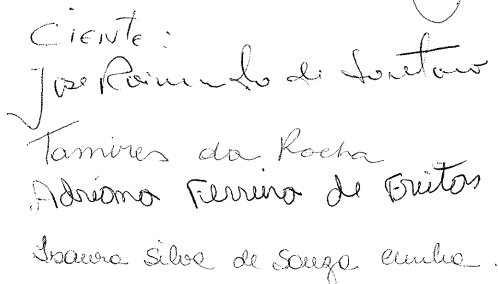 Ciente:
José Raimundo de Santana
Tamires da Rocha
Adriana Ferreira de Freitas
Isaura Silva de Souza Cunha.